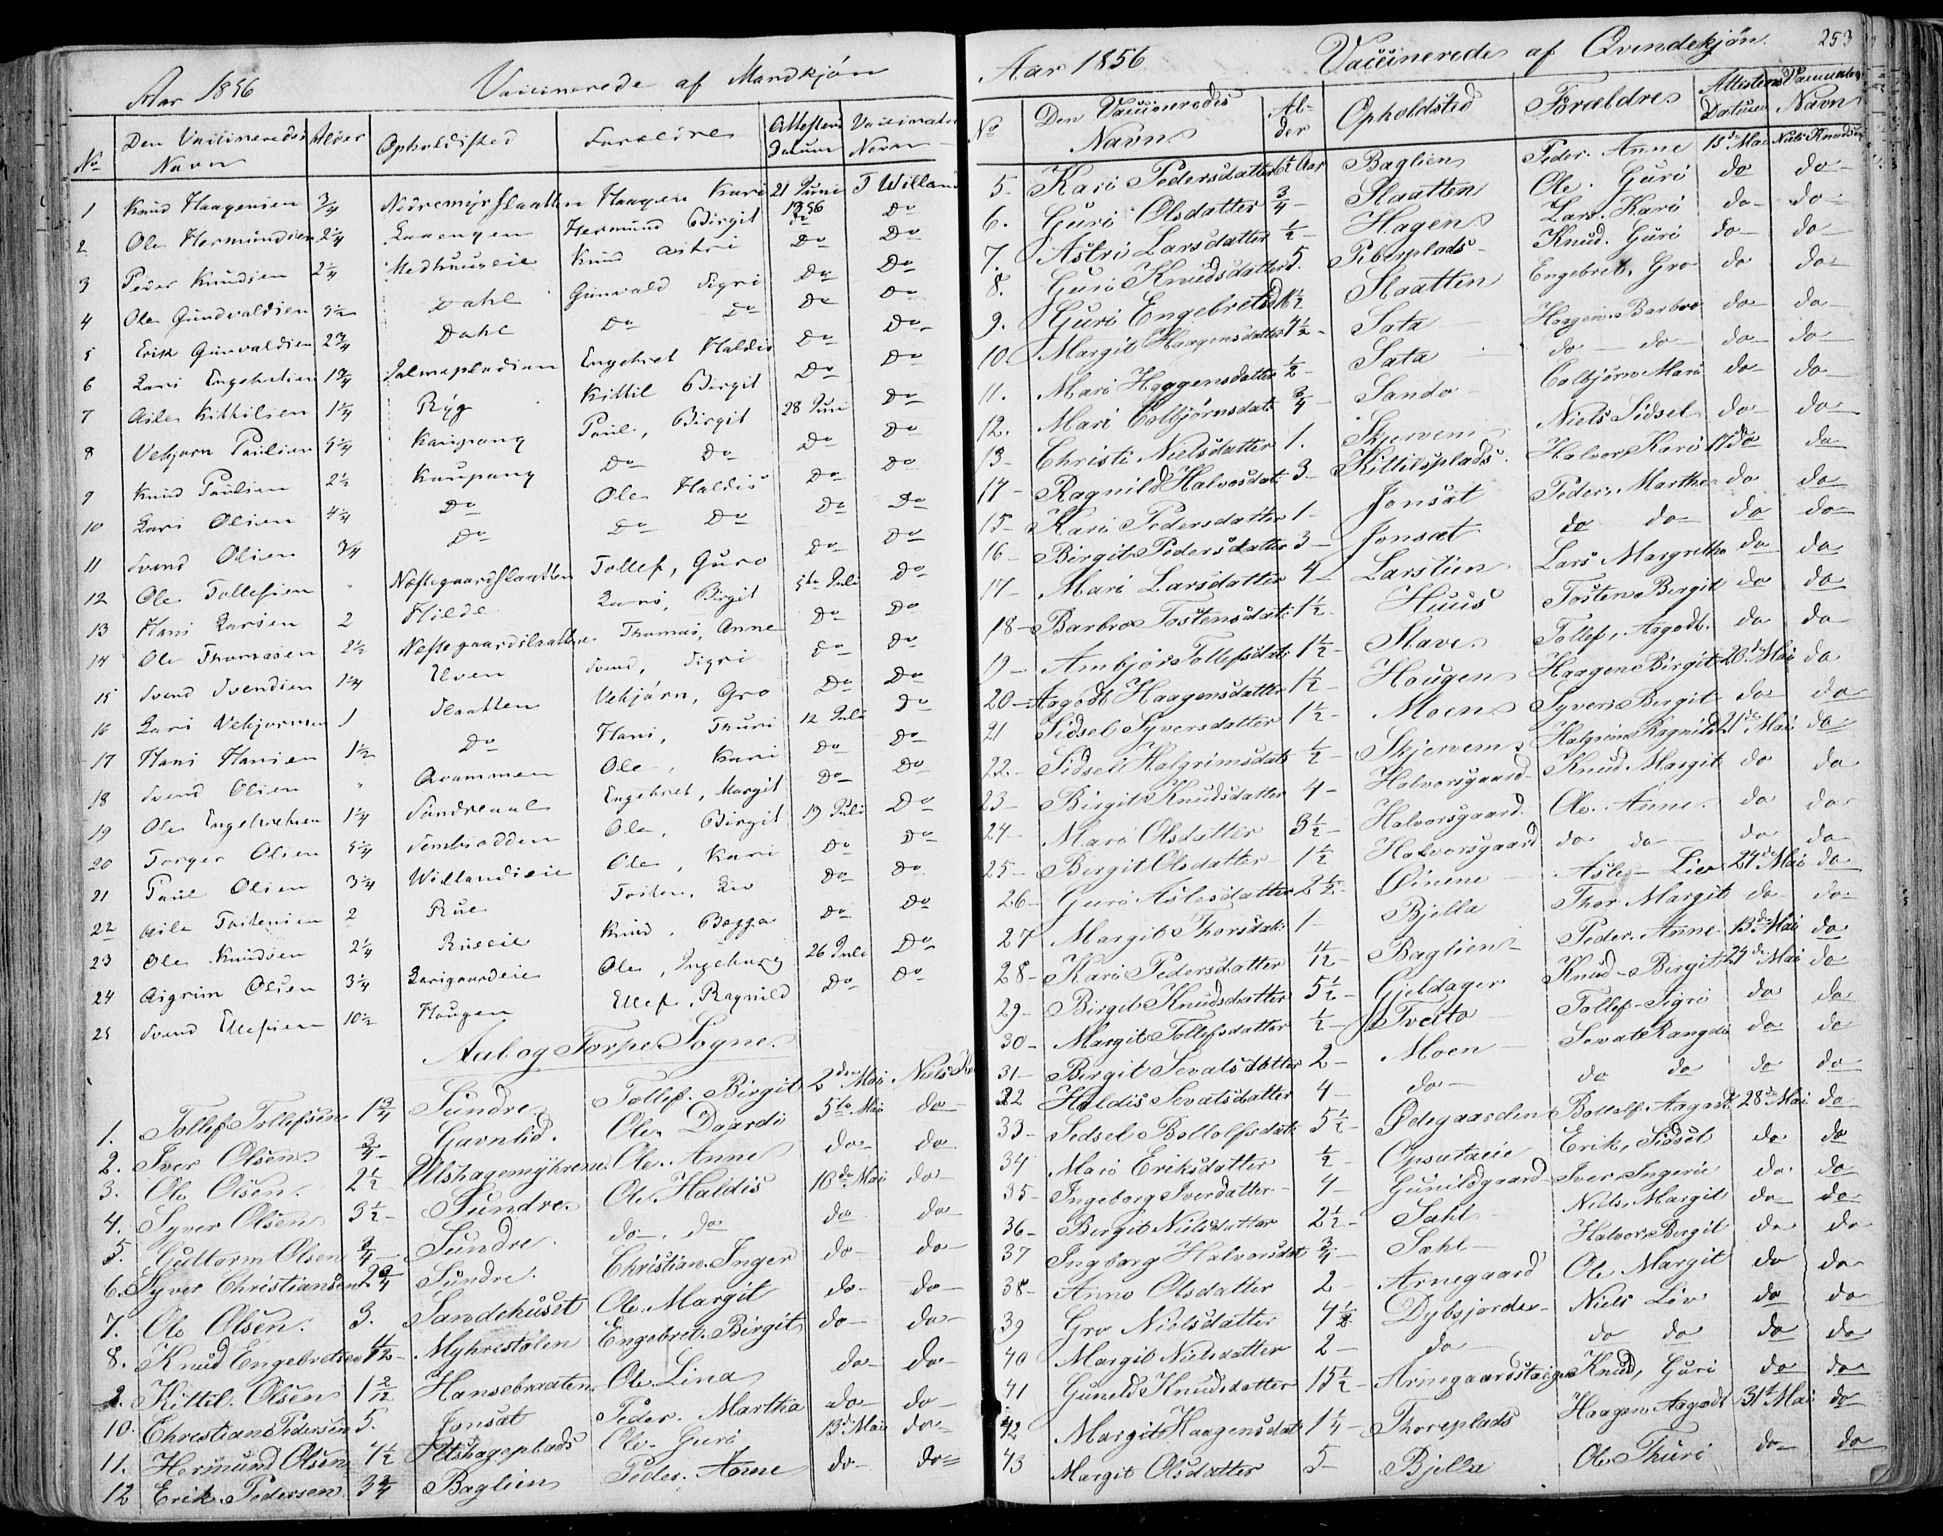 Aar 1856 Vaccinerede af Mandkjøn
No Den Vaccineredes Navn Alder Opholdssted Forældre Attestens Datum Vaccinators Navn
1 Knud Haagensen 3/4 Nedremyrslaatten Haagen Kari 21 Juni 1856 T Willand
2 Ole Hermundsen 2 1/4 Hermund Birgit Do Do
3 Peder Knudsen 2 1/4 Medhuuseie Knud Astri Do Do
4 Ole Gundvaldsen 5 1/2 Dahl Gunvald Sigri Do Do
5 Erik Gunvaldsen 2 3/4 Dahl Do Do Do Do
6 Lars Engebretsen 1 3/4 Engebret Haldis Do Do
7 Asle Kittilsen 1 1/4 Ryg Kittil Birgit Do Do
8 Vebjørn Paulsen 5 1/4 Kaupang Paul, Birgit 28 Juni Do
9 Knud Paulsen 2 1/2 Kaupang Do Do Do Do
10 Lars Olsen 4 1/4 Do Ole Haldis Do Do
11 Svend Olsen 3/4 Do Do Do Do Do
12 Ole Tollefsen " Næssegaardslaatten Tollef, Guro Do Do
13 Hans Larsen 2 Hilde Lars, Birgit 5te Juli Do
14 Ole Thomasen 2 1/2 Næssegaardslaatten Thomas, Anne Do Do
15 Svend Svendsen 1 1/4 Elven Svend, Sigri Do Do
16 Lars Vebjørnsen 1 Slaatten Vebjørn, Gro Do Do
17 Hans Hansen 1 1/2 Do Hans, Thuri 12 Juli Do
18 Svend Olsen " Qvammen Ole, Kari Do Do
19 Ole Engebretsen 1 1/4 Sundreaal Engebret, Margit Do Do
20 Torger Olsen 5 1/4 Ole, Birgit 19 Juli Do
21 Paul Olsen 3 1/4 Willandseie Ole, Kari Do Do
22 Asle Tostensen 2 Rue Tosten, Liv Do Do
23 Ole Knudsen 2 1/4 Rueeie Knud, Do Do
24 Aigrim Olsen 3 1/4 Larsgaardeie Ole, Ingeburg 26 Juli Do
25 Svend Ellefsen 10 1/2 Haugen Ellef, Ragnild Do Do
Aal og Torpe Sogne.
1. Tollef Tollefsen 1 3/4 Sundre Tollef. Birgit 2den Mai Niels
2. Iver Olsen 3/4 Gavnlid. Ole Daardi 5te Mai do
3. Ole Olsen. 2 1/2 Ulshagemyhrene Ole. Anne do do
4. Syver Olsen 3 1/2 Sundre. Ole. Haldis 10de Mai do
5. Guttorm Olsen 3/4 Sundre. do. do do do
6. Syver Christiansen 2 3/4 Sundre. Christian. Inger do do
7. Ole Olsen. 3. Sandehuset Ole. Margit do do
8. Knud Engebretsen Myhrestølen Engebret. Birgit do do
9. Kittil. Olsen 1 2/12 Hansebraaten Ole. Lina do do
10. Christian Pedersen 5. Jonsat Peder. Martha do do
11. Hermund Olsen 4 1/2 Ulshageplads Ole. Guri 13de Mai do
12 Erik. Pedersen 3 3/4 Baglien Peder. Anne do do
Aar 1856 Vaccinerede af Qvindekjøn. 253
No Den Vaccineredes Navn Alder Opholdsted Forældre Attestens Datum Vaccinators Navn
5. Kari Pedersdatter Aar Baglien Peder. Anne 13de Mai Niels Knudsen
6. Guri Olsdatter 3/4 Slaatten Ole. Guri do do
7. Astri Larsdatter 1/2 Hagen Lars. Kari do do
8. Guri Knudsdatter 5 Piberplads Knud. Guri do do
9. Guri Engebretsd 1/2 Slaatten Engebret. Gro do do
10. Margit Haagensdatter 4 1/2 Sata Haagen. Barbro do do
11. Mari Haagensdatter 1/2 Sata do do do do
12. Mari Colbjørnsdat 3/4 Sando Colbjørn Mari do do
13 Christi Nielsdatter 1. Skjervem Niels Sidsel do do
14 Ragnild Halvorsdat 3 Kittilsplads Halvor Kari 17de do
15 Kari Pedersdatter 1 Jonsat Peder. Marthe do do
16 Birgit Pedersdatter 3 Jonsat do do do do
17 Mari Larsdatter 4 Larslien Lars Margretha do do
18 Barbro Tostensdat 1 1/2 Huus Tosten Birgit do do
19 Ambjør Tollefsdat 1 1/2 Stave Tollef, Aagodt. do do
20 Aagodt Haagensdatter 1 1/2 Haugen Haagen Birgit 20de Mai do
21 Sidsel Syversdatter 1 1/2 Moen Syver Birgit do do
22 Sidsel Halgrimsdat 1/2 Skjervem Halgrim Ragnild 21de Mai do
23 Birgit Knudsdatter 4 Halvorsgaard Knud Margit do do
24 Mari Olsdatter 3 1/2 Halvorsgaard Ole. Anne. do do
25 Birgit Olsdatter 1 1/2 Halvorsgaard do do do do
26 Guri Aslesdatter 2 1/2 Øinene Asle Liv 24de Mai do
27 Margit Thorsdat 1 Bjella Thor Margit do do
28 Kari Pedersdatter 1/2 Baglien Peder. Anne 13de Mai do
29 Birgit Knudsdatter 5 1/2 Gjeldager Knud Birgit 24de Mai do
30 Margit Tollefsdatter 1/2 Tveito Tollef Sigri do do
31 Birgit Sevatsdatter 2 Moen Sevat Rangdi do do
32 Haldis Sevatsdatter 4 do do do do do
33 Sedsel Bottolfsdat 5 1/2 Ødegaarden Bottolf Aagodt 28de Mai do
34 Mari Eriksdatter 1/2 Opsataeie Erik, Sidsel do do
35 Ingeborg Iverdatter 4 Gunildgaard Iver Ingerie do do
36 Birgit Nielsdatter 2 1/2 Sahl Niels, Margit do do
37 Ingborg Halvorsdat 3/4 Sahl Halvor Birgit do do
38 Anne Olsdatter 2 Arnegaard Ole Margit do do
39 Gro Nielsdatter 4 1/2 Dybsjordet Niels Liv do do
40 Margit Nielsdatter 2 do do do do do
41 Guneld Knudsdatter 15 1/2 Arnegaardsteigen Knud, Guri do do
42 Margit Haagensdat 1 1/4 Thoreplads Haagen Aagodt 31te Mai do
43 Margit Olsdatter 5 Bjella Ole Thuri do do